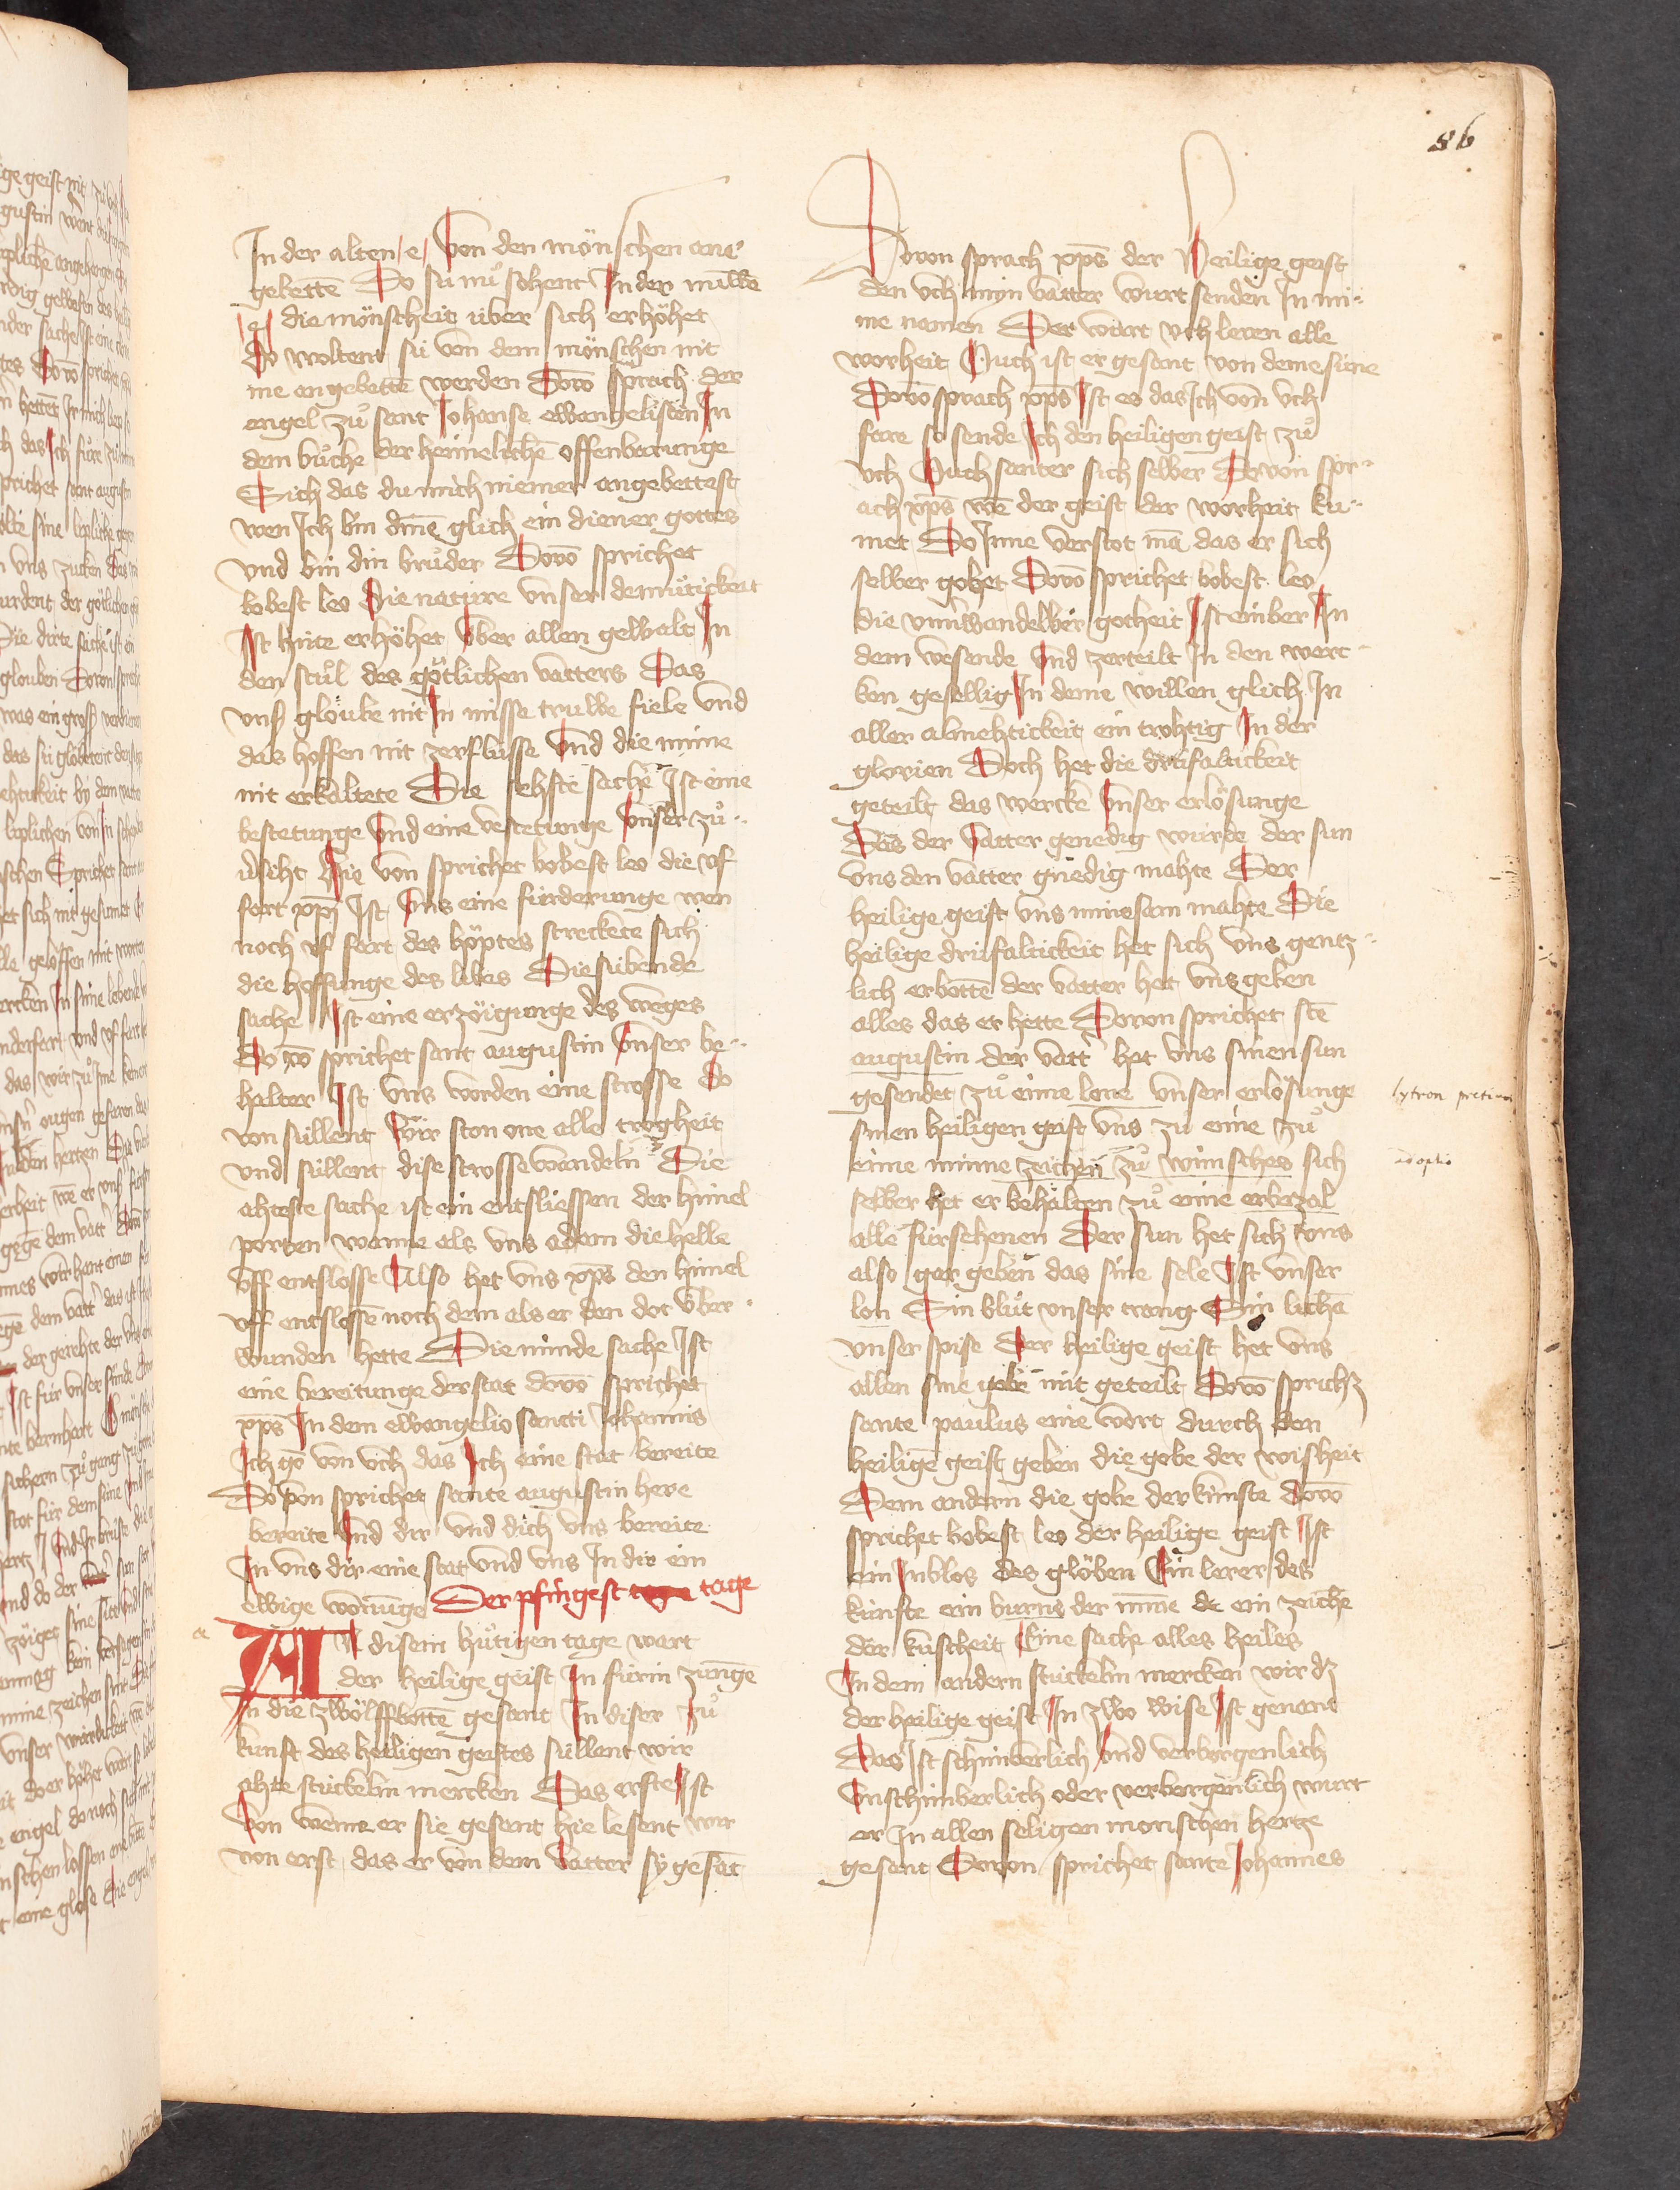 86
In der alten e Von den mönschen ane
gebettē Do sú nuͦ sohent In der nuwē
e die mönscheit úber sich erhöhet
do woltent sú von dem mönschen nit
me an gebettē werden Dovō sprach der
engel zuͦ sant Iohanse ewangelisten In
dem buͦche der heimelichē offenbarunge
Sich das du mich niemer angebettest
wen Ich bin dime glich ein diener gottes
vnd bin din bruͦder Dovō sprichet
bobest leo Die nature vnser demuͤtickeit
Ist húte erhöhet Vber allen gewalt In
den stuͦl des goͤtlichen vatters Das
vnß gloube nit In misse truwe fiele vnd
das hoffen nit zerflússe Vnd die minne
nit erkaltete Die sehste sache Ist eine
bestetunge Vnd eine vestetunge vnser zuͦ
v̓siht Hie von sprichet bobest leo die vf
fart xp̄i Ist Vns eine fúrderunge wen
noch vf fart des höptes streckete sich
die hoffunge des libes Die súbende
sache Ist eine erzöigunge des weges
Do vō sprichet sant augustin Vnser be
halter Ist vns worden eine strosse Do
von súllent Wir ston one alle trogheit
vnd súllent dise strosse wandeln Die
ahteste sache ist ein entsliessen der himel
porten wanne als vns adam die helle
vff entslosse Also het vns xp̄s den himel
vff entslossē noch dem als er den dot Vber
wunden hette Die núnde sache Ist
eine bereitunge der stat dovō sprichet
xp̄s In dem ewangelio sancti Iohannis
Ich gō von vch das Ich eine stat bereite
Do von sprichet sante augustin here
bereite Vnd dir vnd dich vns bereite
In vns dir eine stat vnd vns In dir ein
ewige wonūge Der pfingest tage
AN disem húͤtigen tage wart
der heilige geist In fúrin zungē
In die zwölffbottē gesant In diser zuͦ
kunft des heiligen geistes súllent wir
ahte stúckelin mercken Das erste Ist
Von weme er sie gesant hie lesent wir
von erst das er von dem Vatter sy gesāt
Dovon sprach xp̄s der Heilige geist
den vch min vatter wurt senden In mi
me namen Der wurt vch leren alle
worheit Ouch ist er gesant von deme sune
Dovō sprach xp̄s Ist es das Ich von vch
fare so sende Ich den heiligen geist zuͦ
vch Ouch santer sich selber Dovon spr
ach xp̄s wē der geist der worheit ku
met Do Inne verstot mā das er sich
selber gobet Dovō sprichet bobest leo
die vnwandelber gotheit Ist einber In
dem wesende Vnd zerteilt In den werc
ken gesellig In deme willen glich In
aller almehtickeit ein trehtig In der
glorien Doch het die drifaltickeit
geteilt das wercke Vnser erlösunge
Das der Vatter genedig wurde der sun
Vns den vatter gnedig mahte Der
heilige geist vns minesam mahte Die
heilige drifaltickeit het sich vns gentz
lich erbottē der vatter het vns geben
alles das er hette Dovon sprichet stē
augustin der vatt̓ het vns sinen sun
gesendet zuͦ eime lone vnser erlösunge
sinen heiligen geist vns zu eine zuͦ
eime minne zeichen zuͦ wunsches sich
selber het er behalten zuͦ eime erbezal
alle fúrsehenen Der sun het sich vns
also gar geben das sine sele Ist vnser
lon Sin bluͦt vnser trang Sin lichā
vnser spise Der heilige geist het vns
allen sine gobe mit geteilt Dovō sprichꝫ
sante paulus eime wort durch den
heiligē geist geben die gobe der wisheit
Dem andern die gobe der kúnste Dovō
sprichet bobest leo der heilige geist Ist
ein Inblos des glöben Ein lerer des
kúnste ein burne der minne ein zeichē
der kúscheit Eine sache alles heiles
In dem andern stúckelin mercken wir dz
der heilige geist In zwo wise Ist genant
Das Ist schinberlich Vnd verborgenlich
Vnschinberlich oder verborgenlich wurt
er In allen seligen monschen hertze
gesant Dovon sprichet sante Iohannes
lytron pretium
adoptio